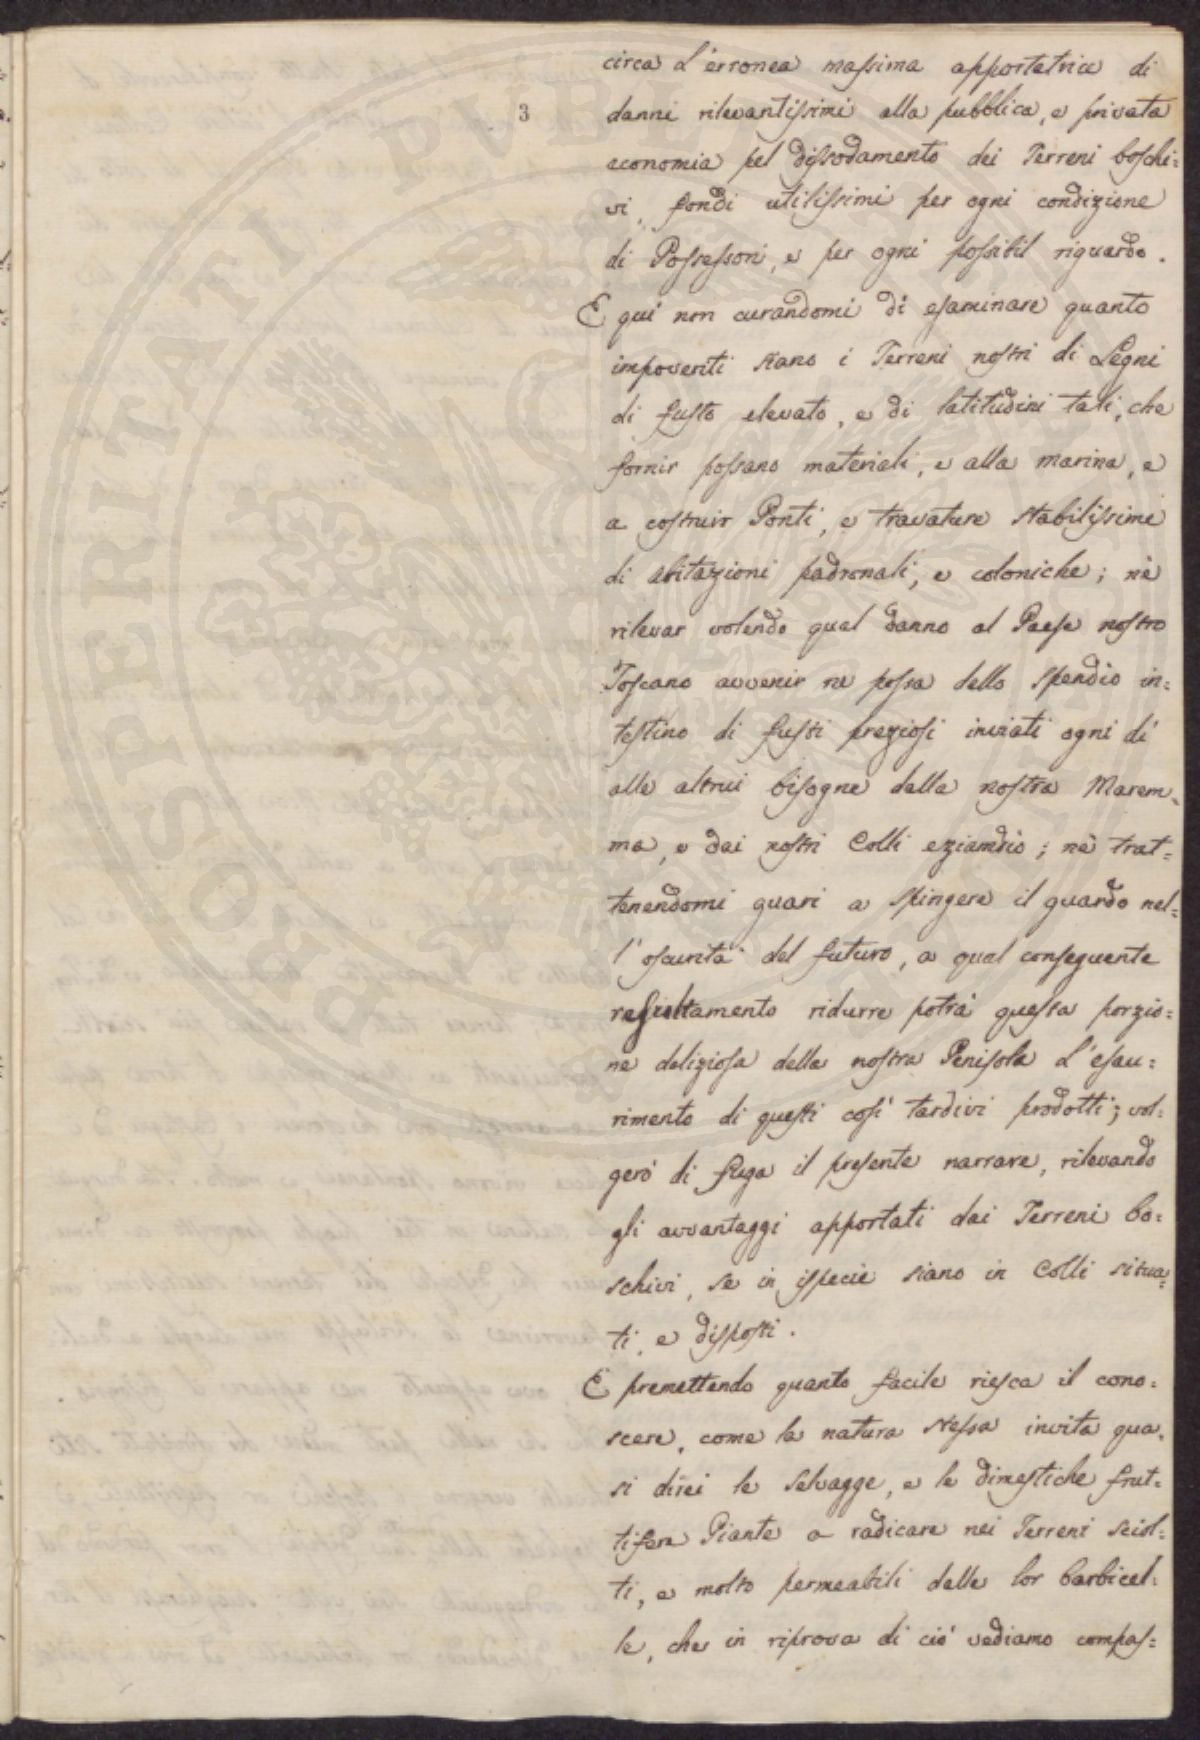 3
circa l'erronea massima apportatrice di
danni rilevantissimi alla pubblica, e privata
economia pel dissodamento dei Terreni boschi=
vi, fondi utilissimi per ogni condizione
di Possessori, e per ogni possibil riguardo.
E quì non curandomi di esaminare quanto
impoveriti siano i Terreni nostri di Legni
di fusto elevato, e di latitudini tali, che
fornir possano materiali, e alla marina, e
a costruir Ponti, e travature stabilissime
di abitazioni padronali, e coloniche; nè
rilevar volendo qual danno al Paese nostro
Toscano avvenir ne possa dello spendio in=
testino di fusti preziosi inviati ogni dì
alle altrui bisogne dalla nostra Marem=
ma, e dai nostri Colli eziandio; nè trat=
tenendomi guari a spingere il guardo nel=
l'oscurità del futuro, a qual conseguente
resultamento ridurre potrà questa porzio=
ne deliziosa della nostra Penisola l'esau=
rimento di questi così tardivi prodotti; vol=
gerò di fuga il presente narrare, rilevando
gli avvantaggi apportati dai Terreni bo=
schivi, se in ispecie siano in Colli situa=
ti, e disposti.
E premettendo quanto facile riesca il cono=
scere, come la natura stessa invita qua=
si direi le selvagge, e le dimestiche frut=
tifere Piante a radicare nei Terreni sciol=
ti, e molto permeabili dalle lor barbicel=
le, che in riprova di ciò vediamo compas=
PROSPERITATI PUBL